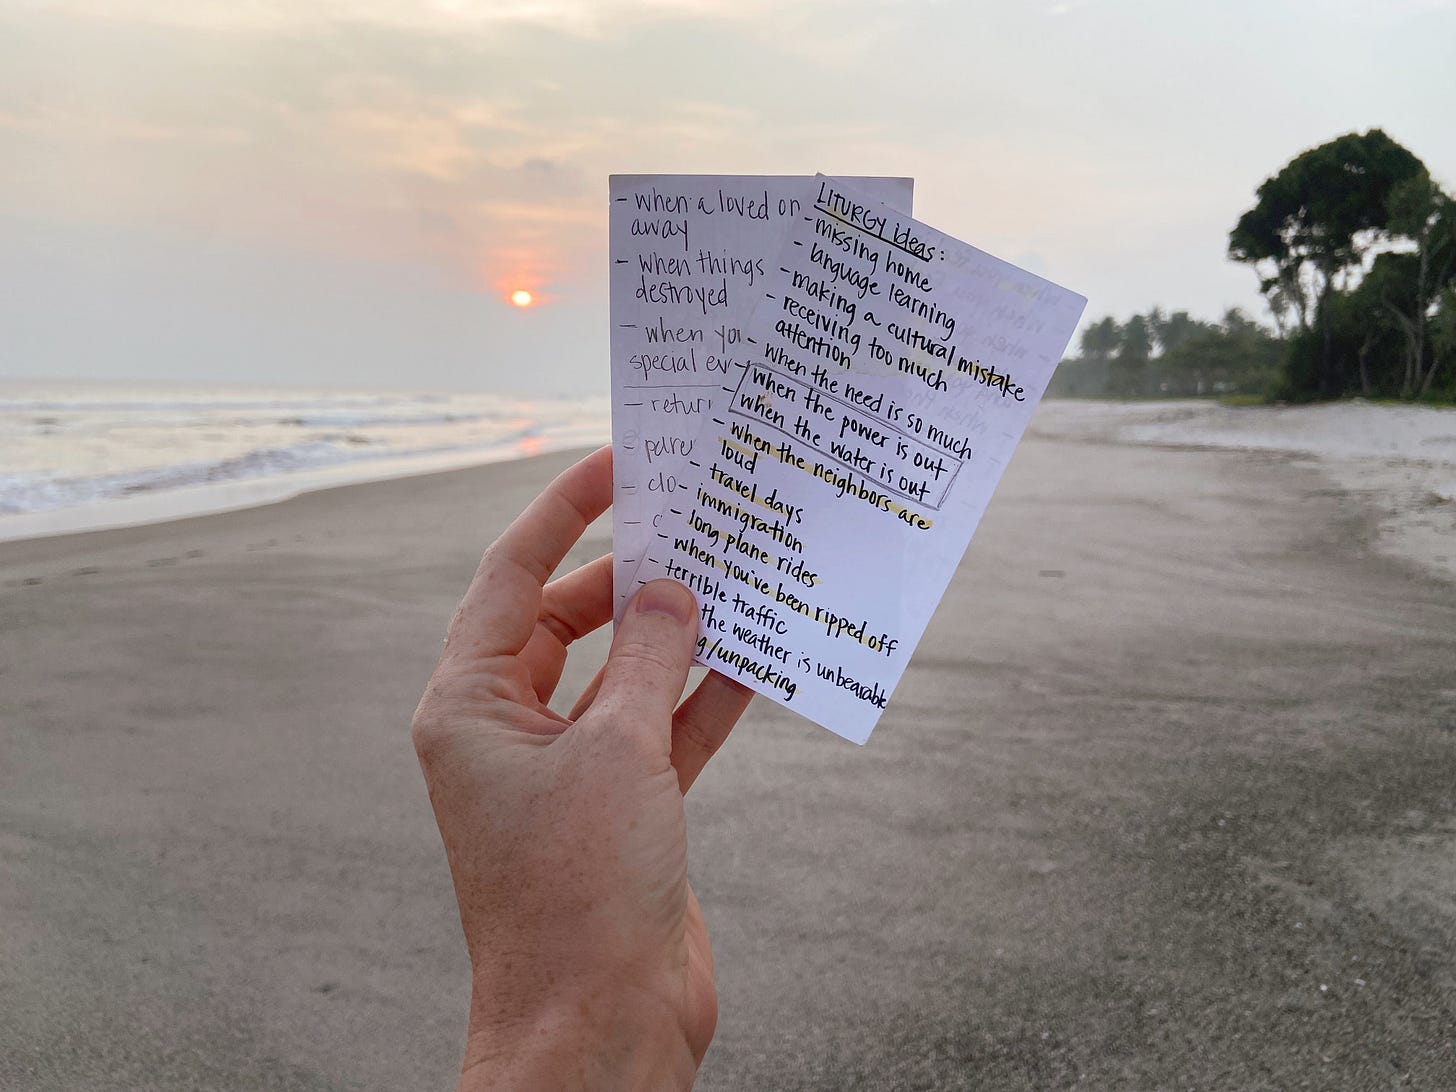 - when a loved on
away
- when things
destroyed
- when you
special ev
- retur
- pare
- clo
LITURGY ideas:
- missing home
- language learning
- making a cultural mistake
- receiving too much
attention
- when the need is so much
- when the power is out
- when the water is out
- when the neighbors are
loud
- travel days
- immigration
- long plane rides
- when you've been ripped off
- terrible traffic
the weather is unbearable
g/unpacking